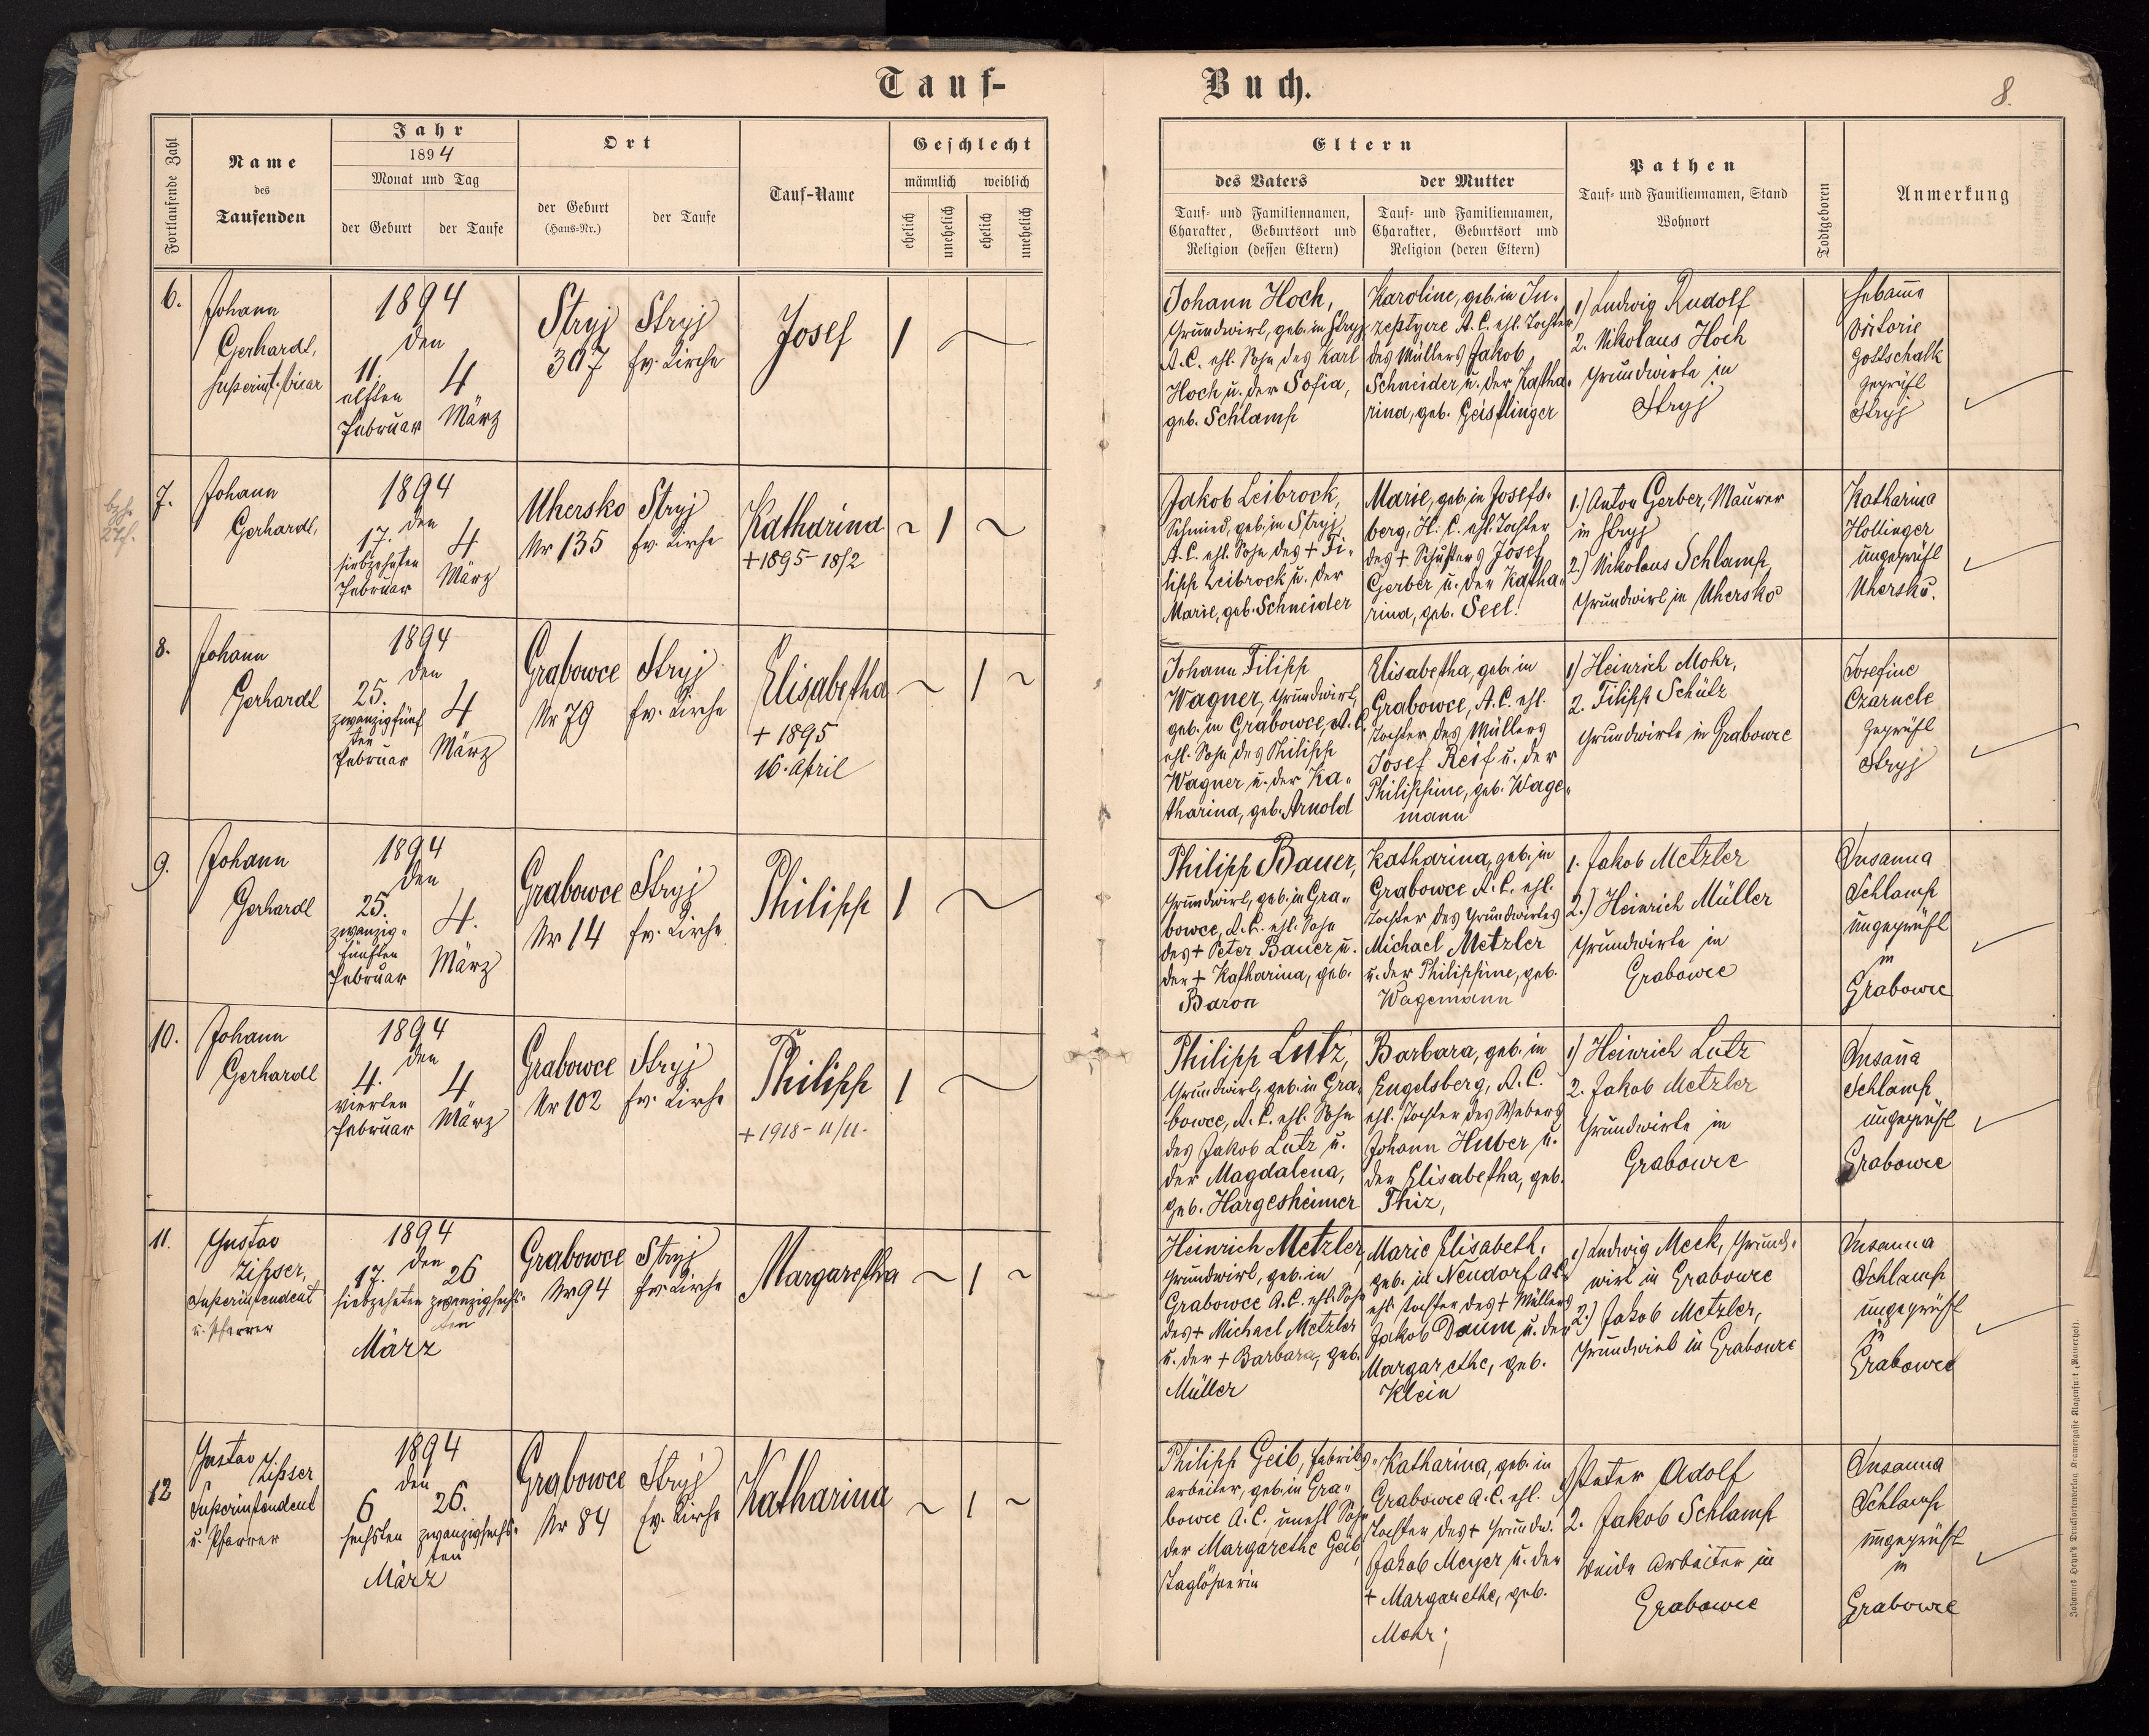 Tauf-
Buch.
8.
Fortlaufende Zahl
Name
des
Taufenden
Jahr
1894
Monat und Tag
der Geburt
der Taufe
Ort
der Geburt
(Haus-Nr.)
der Taufe
Tauf-Name
Geschlecht
männlich weiblich
ehelich
unehelich
ehelich
unehelich
Eltern
des Vaters
der Mutter
Tauf- und Familiennamen,
Charakter, Geburtsort und
Religion (dessen Eltern)
Tauf- und Familiennamen,
Charakter, Geburtsort und
Religion (deren Eltern)
Pathen
Tauf- und Familiennamen, Stand
Wohnort
Todtgeboren
Anmerkung
6.
Johann
Gerhardt,
Superint. vicar
1894
den
11.
elften
Februar
4
März
Stryj
307
Stryj
ev. Kirche
Josef
1
Johann Hoch,
Grundwirt, geb. in Stryj,
A.C. ehl. Sohn des Karl
Hoch u. der Sofia,
geb. Schlamp
Karoline, geb. in Ju-
A.C. ehl. Tochter
des Müllers Jakob
Schneider u. der Katha-
rina, geb. Geistlinger
1) Ludwig Rudolf
2. Nikolaus Hoch
Grundwirte in
Stryj
Hebamme
Viktorie
Gottschalk
geprüft
Stryj
7.
Johann
Gerhardt,
1894
den
17.
siebzehnten
Februar
4
März
Uhersko
Nr 135
Stryj
ev. Kirche
Katharina
+ 1895 - 18/2
1
Jakob Leibrock,
Schmied, geb. in Stryj,
A.C. ehl. Sohn des + Fi-
lipp Leibrock u. der
Marie, geb. Schneider
Marie, geb. in Josefs-
berg, H.C. ehl. Tochter
des + Schusters Josef
Gerber u. der Katha-
rina, geb. Seel.
1.) Anton Gerber, Maurer
in Stryj
2.) Nikolaus Schlamp,
Grundwirt in Uhersko
Katharina
Hollinger
ungeprüft
Uhersko.
8.
Johann
Gerhardt
1894
den
25.
zwanzigfünf
ten
Februar
4
März
Grabowce
Nr 79
Stryj
ev. Kirche
Elisabetha
+ 1895
16. April
1
Johann Filipp
Wagner, Grundwirt,
geb. in Grabowce, A.C.
ehl. Sohn des Philipp
Wagner u. der Ka-
tharina, geb. Arnold
Elisabetha, geb. in
Grabowce, A.C. ehl.
Tochter des Müllers
Josef Reif u. der
Philippine, geb. Wage-
mann
1) Heinrich Mohr,
2. Filipp Schütz
Grundwirte in Grabowce
Josefine
geprüft
Stryj
9.
Johann
Gerhardt
1894
den
25.
zwanzig-
fünften
Februar
4.
März
Grabowce
Nr 14
Stryj
ev. Kirche
Philipp
1
Philipp Bauer,
Grundwirt, geb. in Gra-
bowce, A.C. ehl. Sohn
des + Peter Bauer u.
der + Katharina, geb.
Baron
Katharina, geb. in
Grabowce A.C. ehl.
Tochter des Grundwirtes
Michael Metzler
u. der Philippine, geb.
Wagemann
1. Jakob Metzler
2.) Heinrich Müller
Grundwirte in
Grabowce
Susanna
Schlamp
ungeprüft
in
Grabowce
10.
Johann
Gerhardt
1894
den
4.
vierten
Februar
4
März
Grabowce
Nr 102
Stryj
ev. Kirche
Philipp
+ 1918 - 11/11.
1
Philipp Lutz,
Grundwirt, geb. in Gra-
bowce, A.C. ehl. Sohn
des Jakob Lutz u.
der Magdalena,
geb. Hargesheimer
Barbara, geb. in
Engelsberg, A.C.
ehl. Tochter des Webers
Johann Huber u.
der Elisabetha, geb.
Thiz,
1) Heinrich Lutz
2. Jakob Metzler
Grundwirte in
Grabowce
Susana
Schlamp
ungeprüft
Grabowce
11.
Gustav
Zipser,
Superintendent
u. Pfarrer
1894
den
17.
siebzehnten
26
zwanzigsechs-
ten
März
Grabowce
Nr 94
Stryj
ev. Kirche
Margaretha
1
Heinrich Metzler,
Grundwirt, geb. in
Grabowce A.C. ehl. Sohn
des + Michael Metzler
u. der + Barbara, geb.
Müller
Marie Elisabeth,
geb. in Neudorf A.C.
ehl. Tochter des + Müllers
Jakob Daum u. der
Margarethe, geb.
Klein
1) Ludwig Meck, Grund-
wirt in Grabowce
2.) Jakob Metzler,
Grundwirt in Grabowce
Susanna
Schlamp
ungeprüft
in
Grabowce
12
Gustav
Zipser
Superintendent
u. Pfarrer
1894
den
6
sechsten
26.
zwanzigsechs-
ten
März
Grabowce
Nr 84
Stryj
ev. Kirche
Katharina
1
Philipp Geib, Fabriks-
arbeiter, geb. in Gra-
bowce A.C. unehl. Sohn
der Margarethe Geib,
Taglöhnerin
Katharina, geb. in
Grabowce A.C. ehl.
Tochter des + Grundw.
Jakob Meyer u. der
+ Margarethe, geb.
Mohr;
1) Peter Adolf
2. Jakob Schlamp
beide Arbeiter in
Grabowce
Susanna
Schlamp
ungeprüft
in
Grabowce